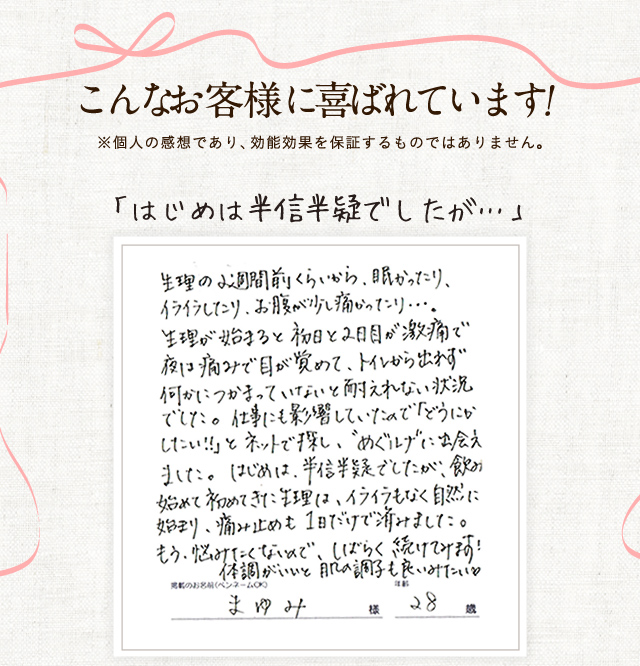 こんなお客様に喜ばれています!
※個人の感想であり、効能効果を保証するものではありません。
「はじめは半信半疑でしたが…」
生理の2週間前くらいから、眠かったり、
イライラしたり、お腹が少し痛かったり・・・。
生理が始まると初日と2日目が激痛で
夜は痛みで目が覚めて、トイレから出れず
何かにつかまっていないと耐えれない状況
でした。仕事にも影響していたので「どうにか
したい!!」とネットで探し、“めぐルナ”に出会え
ました。はじめは、半信半疑でしたが、飲み
始めて初めてきた生理は、イライラもなく自然に
始まり、痛み止めも1日だけで済みました。
もう、悩みたくないので、しばらく続けてみます!
体調がいいと肌の調子も良いみたい♡
掲載のお名前(ペンネームOK) 年齢
まゆみ 様 28 歳